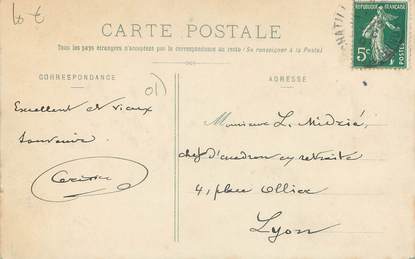 CARTE POSTALE
Tous les pays étrangers n'acceptent pas la correspondance au recto (Se renseigner à la Poste)
RÉPUBLIQUE FRANÇAISE
5c
CORRESPONDANCE
ADRESSE
Excellent et vieux
souvenir
Monsieur L.
chef d'escadron en retraite
4, place Ollier
Lyon